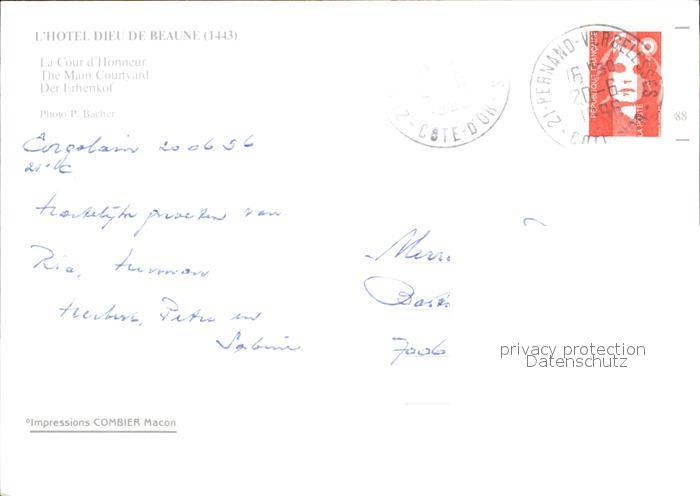 L'HOTEL DIEU DE BEAUNE (1443)
La Cour d'Honneur
The Main Courtyard
Der Erhenkof
Photo P. Bacher
21-PERNAND-VERGELESSES
20-6
CÔTE-D'OR
REPUBLIQUE FRANÇAISE
LA POSTE
20 06 96
21°C
Hartelijke groeten van
Ria, Herman
Herbert, Petra en
Sabine
7006
privacy protection
Datenschutz
°Impressions COMBIER Macon